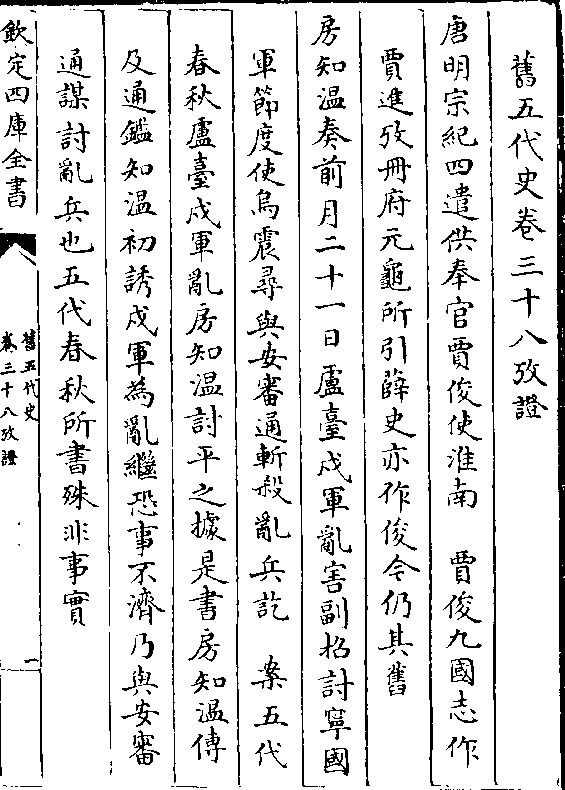 舊五代史卷三十八攷證
唐明宗紀四遣供奉官賈俊使淮南　賈俊九國志作
賈進攷冊府元龜所引薛史亦作俊今仍其舊
房知溫奏前月二十一日盧臺戍軍亂害副招討寧國
軍節度使烏震尋與安審通斬殺亂兵訖　案五代
春秋盧臺戍軍亂房知溫討平之據是書房知溫傳
及通鑑知溫初誘戍軍為亂繼恐事不濟乃與安審
通謀討亂兵也五代春秋所書殊非事實
欽定四庫全書
舊五代史
卷三十八攷證
一